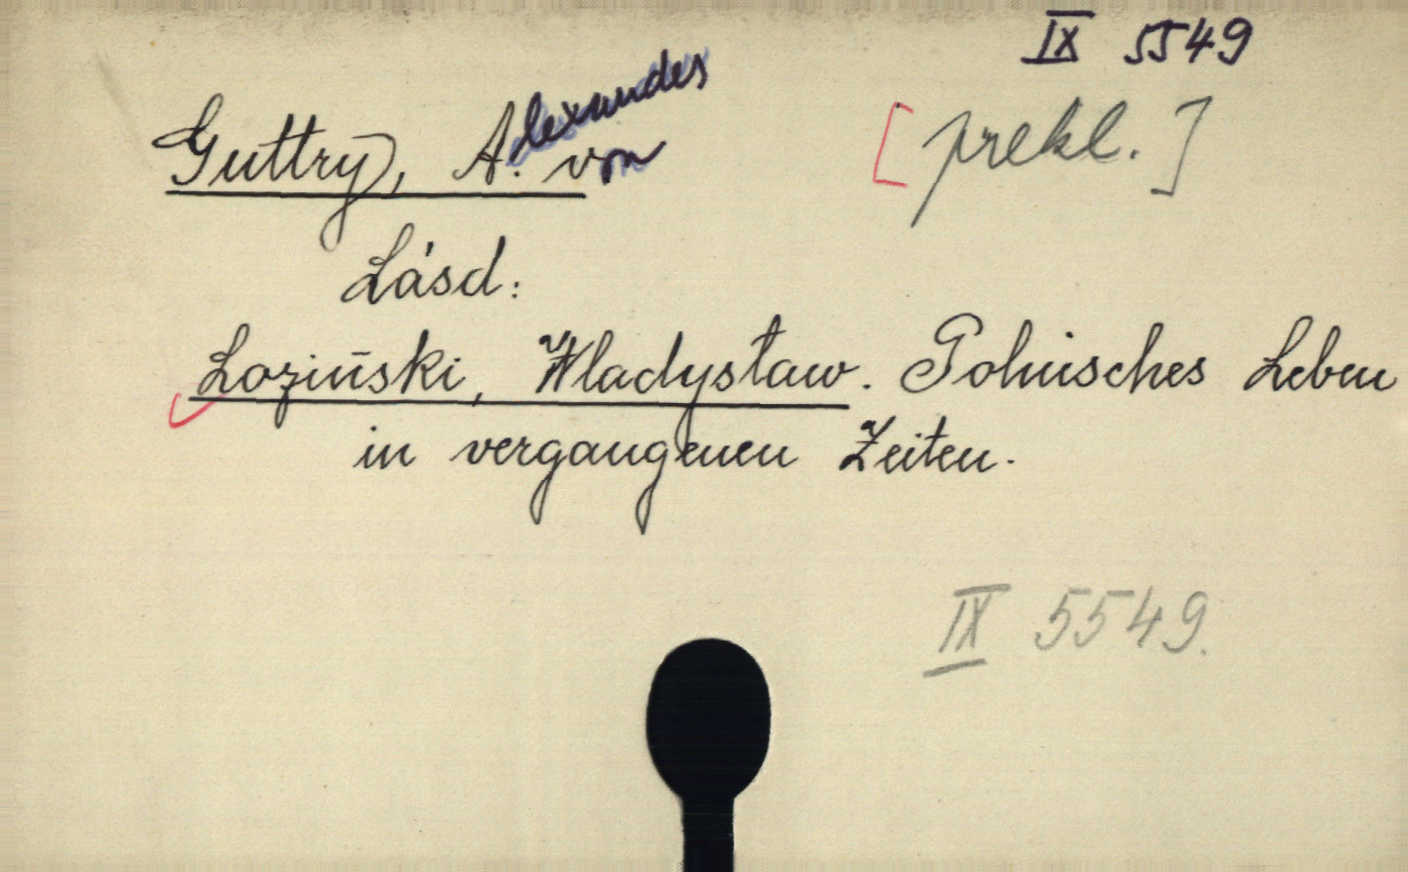 IX 5549
Guttry, A. lexander von
[prekl.]
Lásd:
Loziński, Wladysław. Polnisches Leben
in vergangenen Zeiten.
IX 5549.